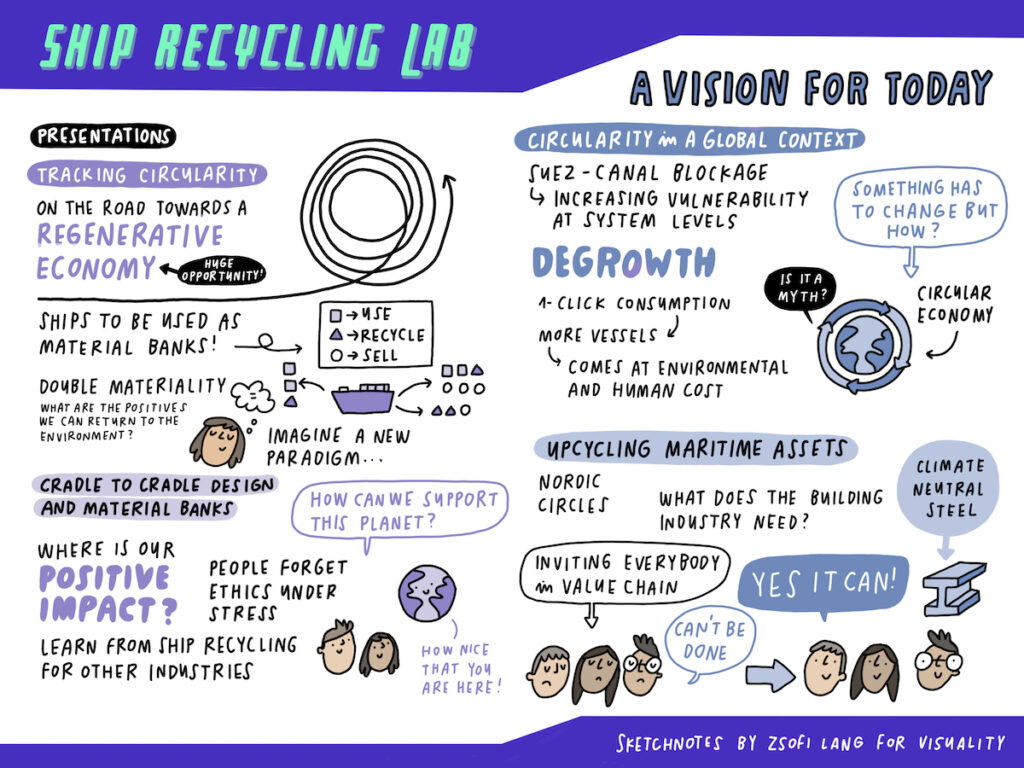 SHIP RECYCLING LAB
A VISION FOR TODAY
PRESENTATIONS
TRACKING CIRCULARITY
ON THE ROAD TOWARDS A
REGENERATIVE
ECONOMY
HUGE
OPPORTUNITY!
SHIPS TO BE USED AS
MATERIAL BANKS!
→ USE
→ RECYCLE
→ SELL
DOUBLE MATERIALITY
WHAT ARE THE POSITIVES
WE CAN RETURN TO THE
ENVIRONMENT?
IMAGINE A NEW
PARADIGM...
CRADLE TO CRADLE DESIGN
AND MATERIAL BANKS
HOW CAN WE SUPPORT
THIS PLANET?
WHERE IS OUR
POSITIVE
IMPACT?
PEOPLE FORGET
ETHICS UNDER
STRESS
LEARN FROM SHIP RECYCLING
FOR OTHER INDUSTRIES
HOW NICE
THAT YOU
ARE HERE!
CIRCULARITY in A GLOBAL CONTEXT
SUEZ-CANAL BLOCKAGE
INCREASING VULNERABILITY
AT SYSTEM LEVELS
SOMETHING HAS
TO CHANGE BUT
HOW?
DEGROWTH
1-CLICK CONSUMPTION
MORE VESSELS
COMES AT ENVIRONMENTAL
AND HUMAN COST
IS IT A
MYTH?
CIRCULAR
ECONOMY
UPCYCLING MARITIME ASSETS
NORDIC
CIRCLES
WHAT DOES THE BUILDING
INDUSTRY NEED?
CLIMATE
NEUTRAL
STEEL
INVITING EVERYBODY
in VALUE CHAIN
CAN'T BE
DONE
YES IT CAN!
SKETCHNOTES BY ZSOFI LANG FOR VISUALITY